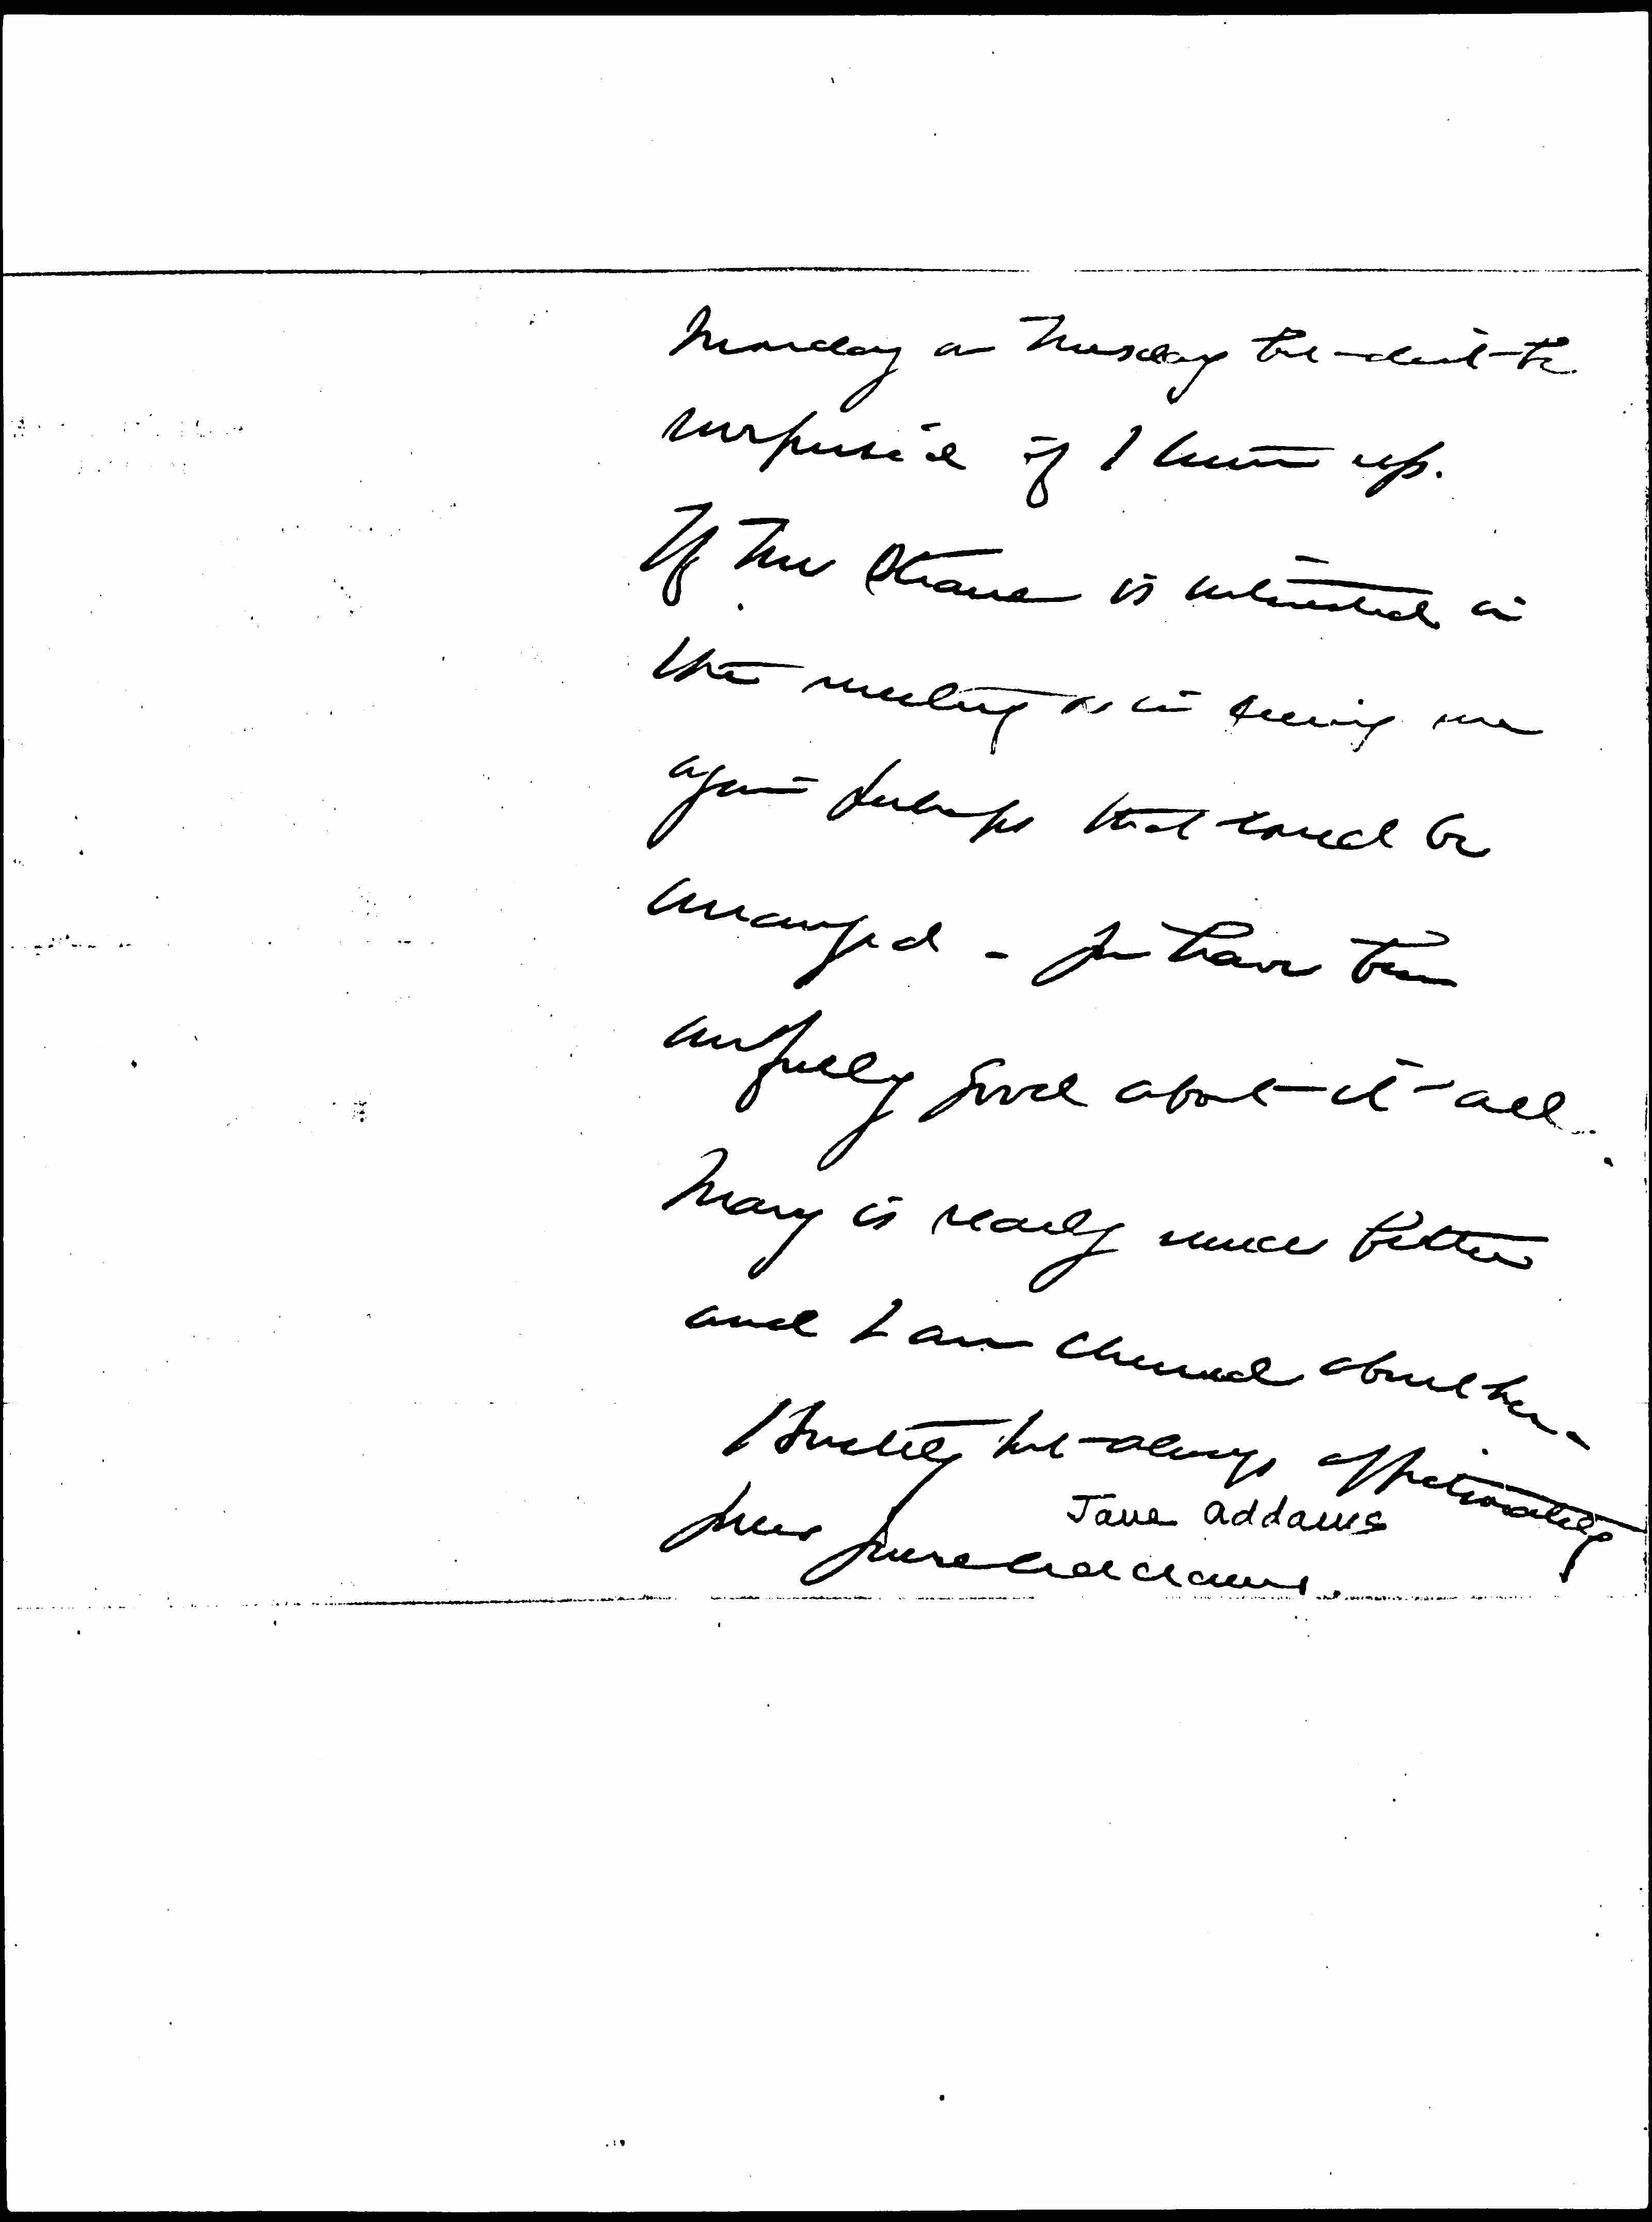 Monday or Tuesday but don't be
surprised if I turn up.
If Mrs is interested in
the meeting or in seeing me
again perhaps that could be
arranged - you have been
awfully good about it all
Mary is really much better
and I am cheered about her -
Hastily but always affectionately
Jane Addams
yours Jane Addams.